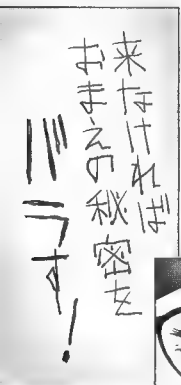 来なければ
おまえの秘密を
バラす!